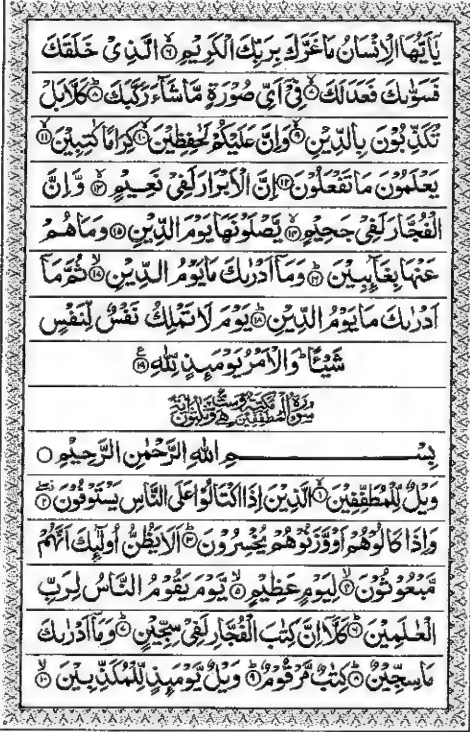 يٰۤاَيُّهَا الْاِنْسَانُ مَا غَرَّكَ بِرَبِّكَ الْكَرِيْمِ ۙ﴿۶﴾ الَّذِيْ خَلَقَكَ
فَسَوّٰىكَ فَعَدَلَكَ ۙ﴿۷﴾ فِيْۤ اَيِّ صُوْرَةٍ مَّا شَآءَ رَكَّبَكَ ؕ﴿۸﴾ كَلَّا بَلْ
تُكَذِّبُوْنَ بِالدِّيْنِ ۙ﴿۹﴾ وَاِنَّ عَلَيْكُمْ لَحٰفِظِيْنَ ۙ﴿۱۰﴾ كِرَامًا كٰتِبِيْنَ ۙ﴿۱۱﴾
يَعْلَمُوْنَ مَا تَفْعَلُوْنَ ﴿۱۲﴾ اِنَّ الْاَبْرَارَ لَفِيْ نَعِيْمٍ ۚ﴿۱۳﴾ وَّاِنَّ
الْفُجَّارَ لَفِيْ جَحِيْمٍ ۚۖ﴿۱۴﴾ يَّصْلَوْنَهَا يَوْمَ الدِّيْنِ ﴿۱۵﴾ وَمَا هُمْ
عَنْهَا بِغَآىِٕبِيْنَ ؕ﴿۱۶﴾ وَمَاۤ اَدْرٰىكَ مَا يَوْمُ الدِّيْنِ ۙ﴿۱۷﴾ ثُمَّ مَاۤ
اَدْرٰىكَ مَا يَوْمُ الدِّيْنِ ؕ﴿۱۸﴾ يَوْمَ لَا تَمْلِكُ نَفْسٌ لِّنَفْسٍ
شَيْـًٔا ؕ وَالْاَمْرُ يَوْمَىِٕذٍ لِّلّٰهِ ﴿۱۹﴾
سُوْرَةُ الْمُطَفِّفِيْنَ مَكِّيَّةٌ
بِسْمِ اللّٰهِ الرَّحْمٰنِ الرَّحِيْمِ ○
وَيْلٌ لِّلْمُطَفِّفِيْنَ ۙ﴿۱﴾ الَّذِيْنَ اِذَا اكْتَالُوْا عَلَي النَّاسِ يَسْتَوْفُوْنَ ؗۖ﴿۲﴾
وَاِذَا كَالُوْهُمْ اَوْ وَّزَنُوْهُمْ يُخْسِرُوْنَ ؕ﴿۳﴾ اَلَا يَظُنُّ اُولٰٓىِٕكَ اَنَّهُمْ
مَّبْعُوْثُوْنَ ۙ﴿۴﴾ لِيَوْمٍ عَظِيْمٍ ۙ﴿۵﴾ يَّوْمَ يَقُوْمُ النَّاسُ لِرَبِّ
الْعٰلَمِيْنَ ؕ﴿۶﴾ كَلَّاۤ اِنَّ كِتٰبَ الْفُجَّارِ لَفِيْ سِجِّيْنٍ ؕ﴿۷﴾ وَمَاۤ اَدْرٰىكَ
مَا سِجِّيْنٌ ؕ﴿۸﴾ كِتٰبٌ مَّرْقُوْمٌ ؕ﴿۹﴾ وَيْلٌ يَّوْمَىِٕذٍ لِّلْمُكَذِّبِيْنَ ۙ﴿۱۰﴾